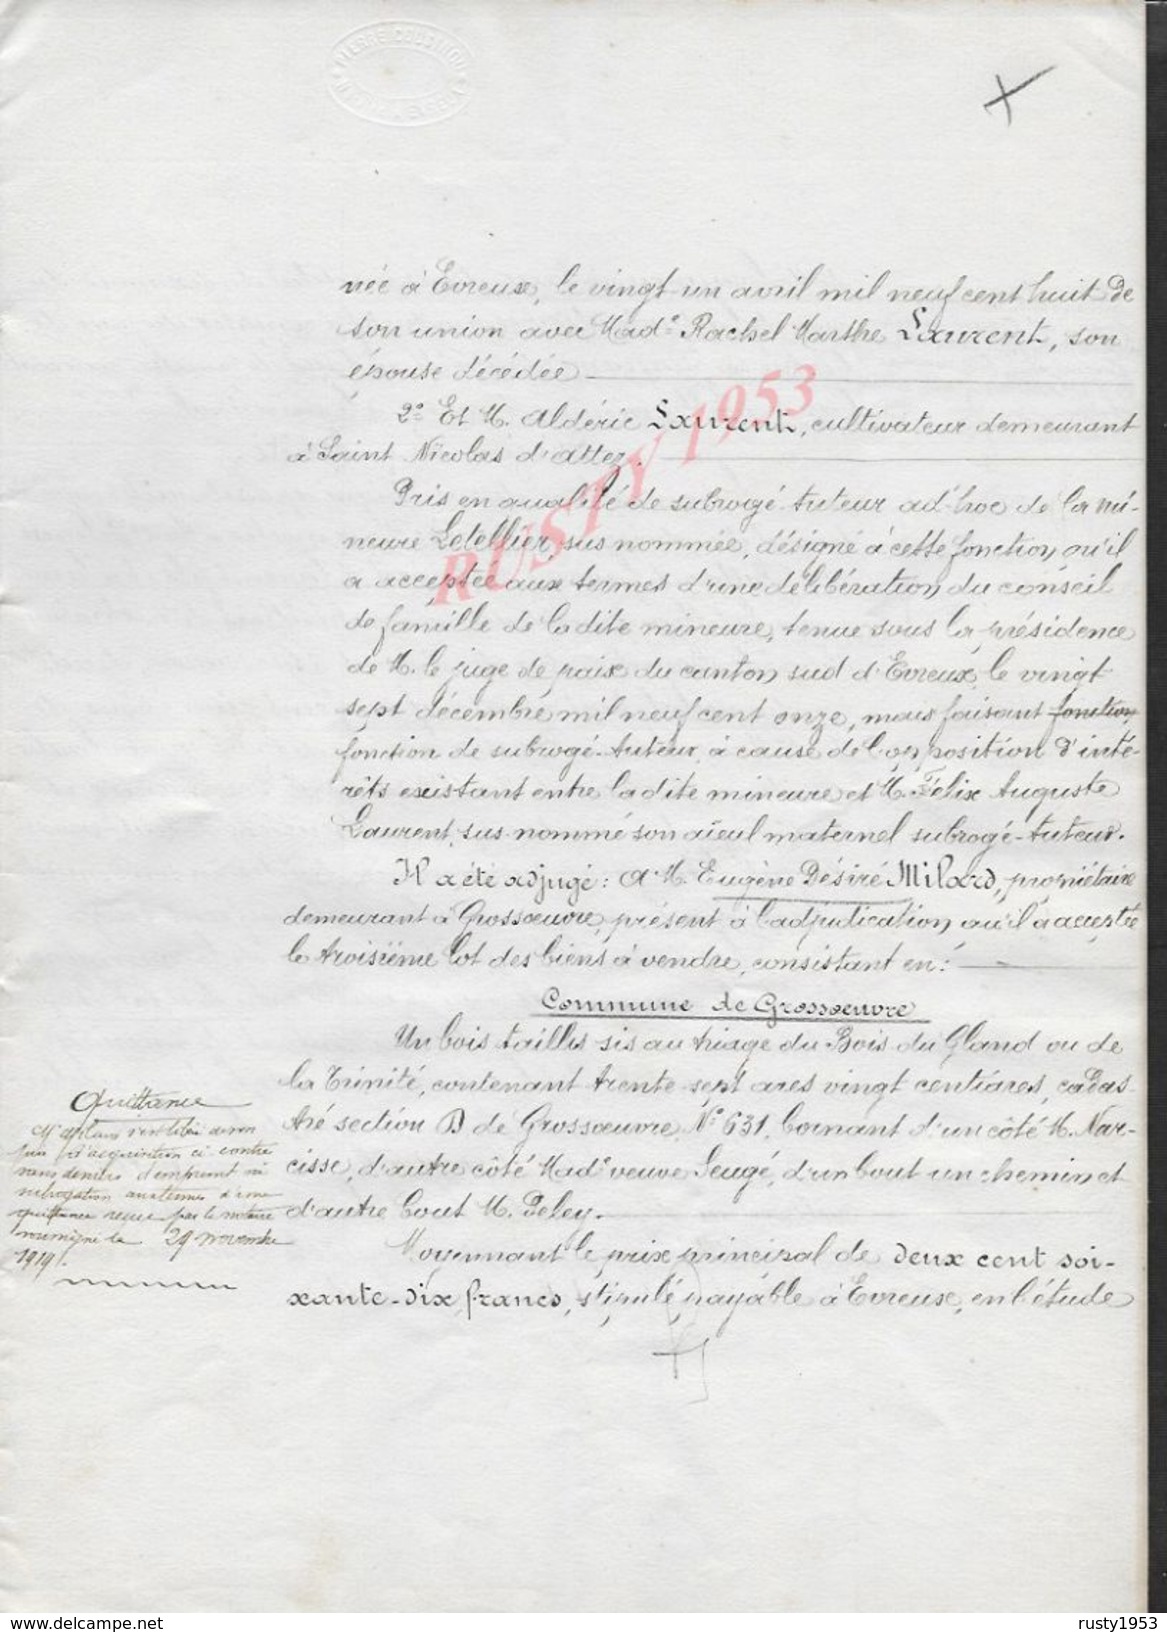 née à Evreux, le vingt un avril mil neuf cent huit de
son union avec Made Rachel Marthe Laurent, son
épouse décédée
2° Et M. Aldéric Laurent, cultivateur demeurant
à Saint Nicolas d'Attez.
Pris en qualité de subrogé-tuteur ad-hoc de la mi-
neure Letellier, sus nommée, désigné à cette fonction qu'il
a acceptée aux termes d'une délibération du conseil
de famille de ladite mineure, tenue sous la présidence
de M. le juge de paix du canton sud d'Evreux, le vingt
sept décembre mil neuf cent onze, mais faisant fonction
fonction de subrogé-tuteur, à cause de l'opposition d'inté-
rêts existant entre ladite mineure et M. Félix Auguste
Laurent, sus-nommé son aïeul maternel subrogé-tuteur.
Il a été adjugé: A M. Eugène Désiré Milard, propriétaire
demeurant à Grossoeuvre, présent à l'adjudication qu'il a acceptée
le troisième lot des biens à vendre, consistant en:
Commune de Grossoeuvre
Un bois taillis sis au triage du Bois du Gland ou de
la Trinité, contenant trente-sept ares vingt centiares, cadas-
tré section D de Grossoeuvre, N° 631, bornant d'un côté M. Nar-
cisse, d'autre côté Made veuve Seugé, d'un bout un chemin et
d'autre bout M. Peley.
Moyennant le prix principal de deux cent soi-
xante-dix francs, stipulé payable à Evreux, en l'étude
Quittance
s'est libéré de son
prix d'acquisition ci contre
sans deniers d'emprunt ni
subrogation aux termes d'une
quittance reçue par le notaire
soussigné le 29 novembre
1919.
RUSTY 1953
delcampe.net
rusty1953